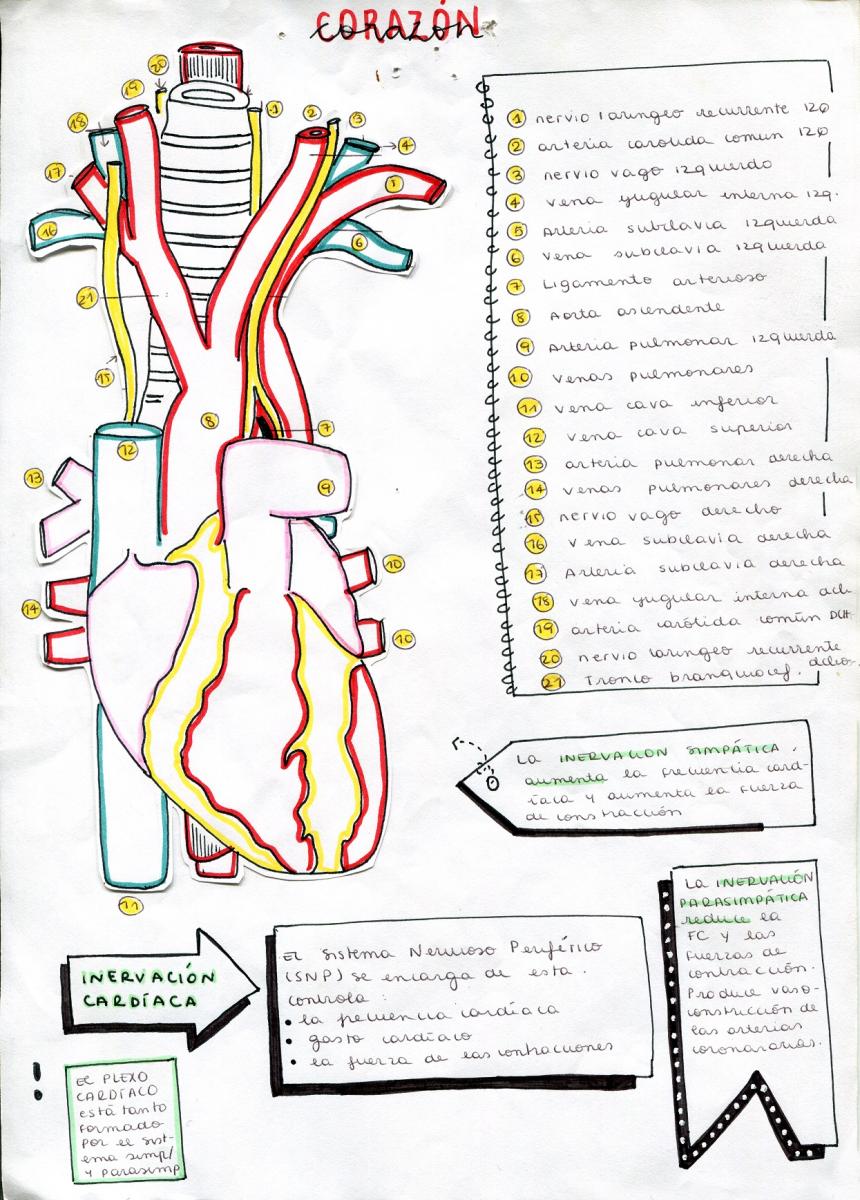 CORAZÓN
corazón
20
19
1
2
3
18
4
17
5
16
6
21
15
8
7
12
13
9
10
14
10
11
1 nervio laringeo recurrente izq
2 arteria carotida común izq
3 nervio vago izquierdo
4 vena yugular interna izq.
5 Arteria subclavia izquierda
6 vena subclavia izquierda
7 Ligamento arterioso
8 Aorta ascendente
9 Arteria pulmonar izquierda
10 venas pulmonares
11 vena cava inferior
12 vena cava superior
13 arteria pulmonar derecha
14 venas pulmonares derecha
15 nervio vago derecho
16 vena subclavia derecha
17 Arteria subclavia derecha
18 vena yugular interna dch
19 arteria carótida común DCH
20 nervio laringeo recurrente
21 Tronco branquiocef.
La INERVACIÓN SIMPÁTICA,
aumenta la frecuencia card-
íaca y aumenta la fuerza
de constracción
La INERVACIÓN
PARASIMPÁTICA
reduce la
FC y las
fuerzas de
contracción.
Produce vaso-
constricción de
las arterias
coronarias.
INERVACIÓN
CARDÍACA
El Sistema Nervioso Periférico
(SNP) se encarga de esta.
Controla:
• la frecuencia cardíaca
• gasto cardíaco
• la fuerza de las contracciones
!
El PLEXO
CARDÍACO
está tanto
formado
por el sist-
ema simp/
y parasimp